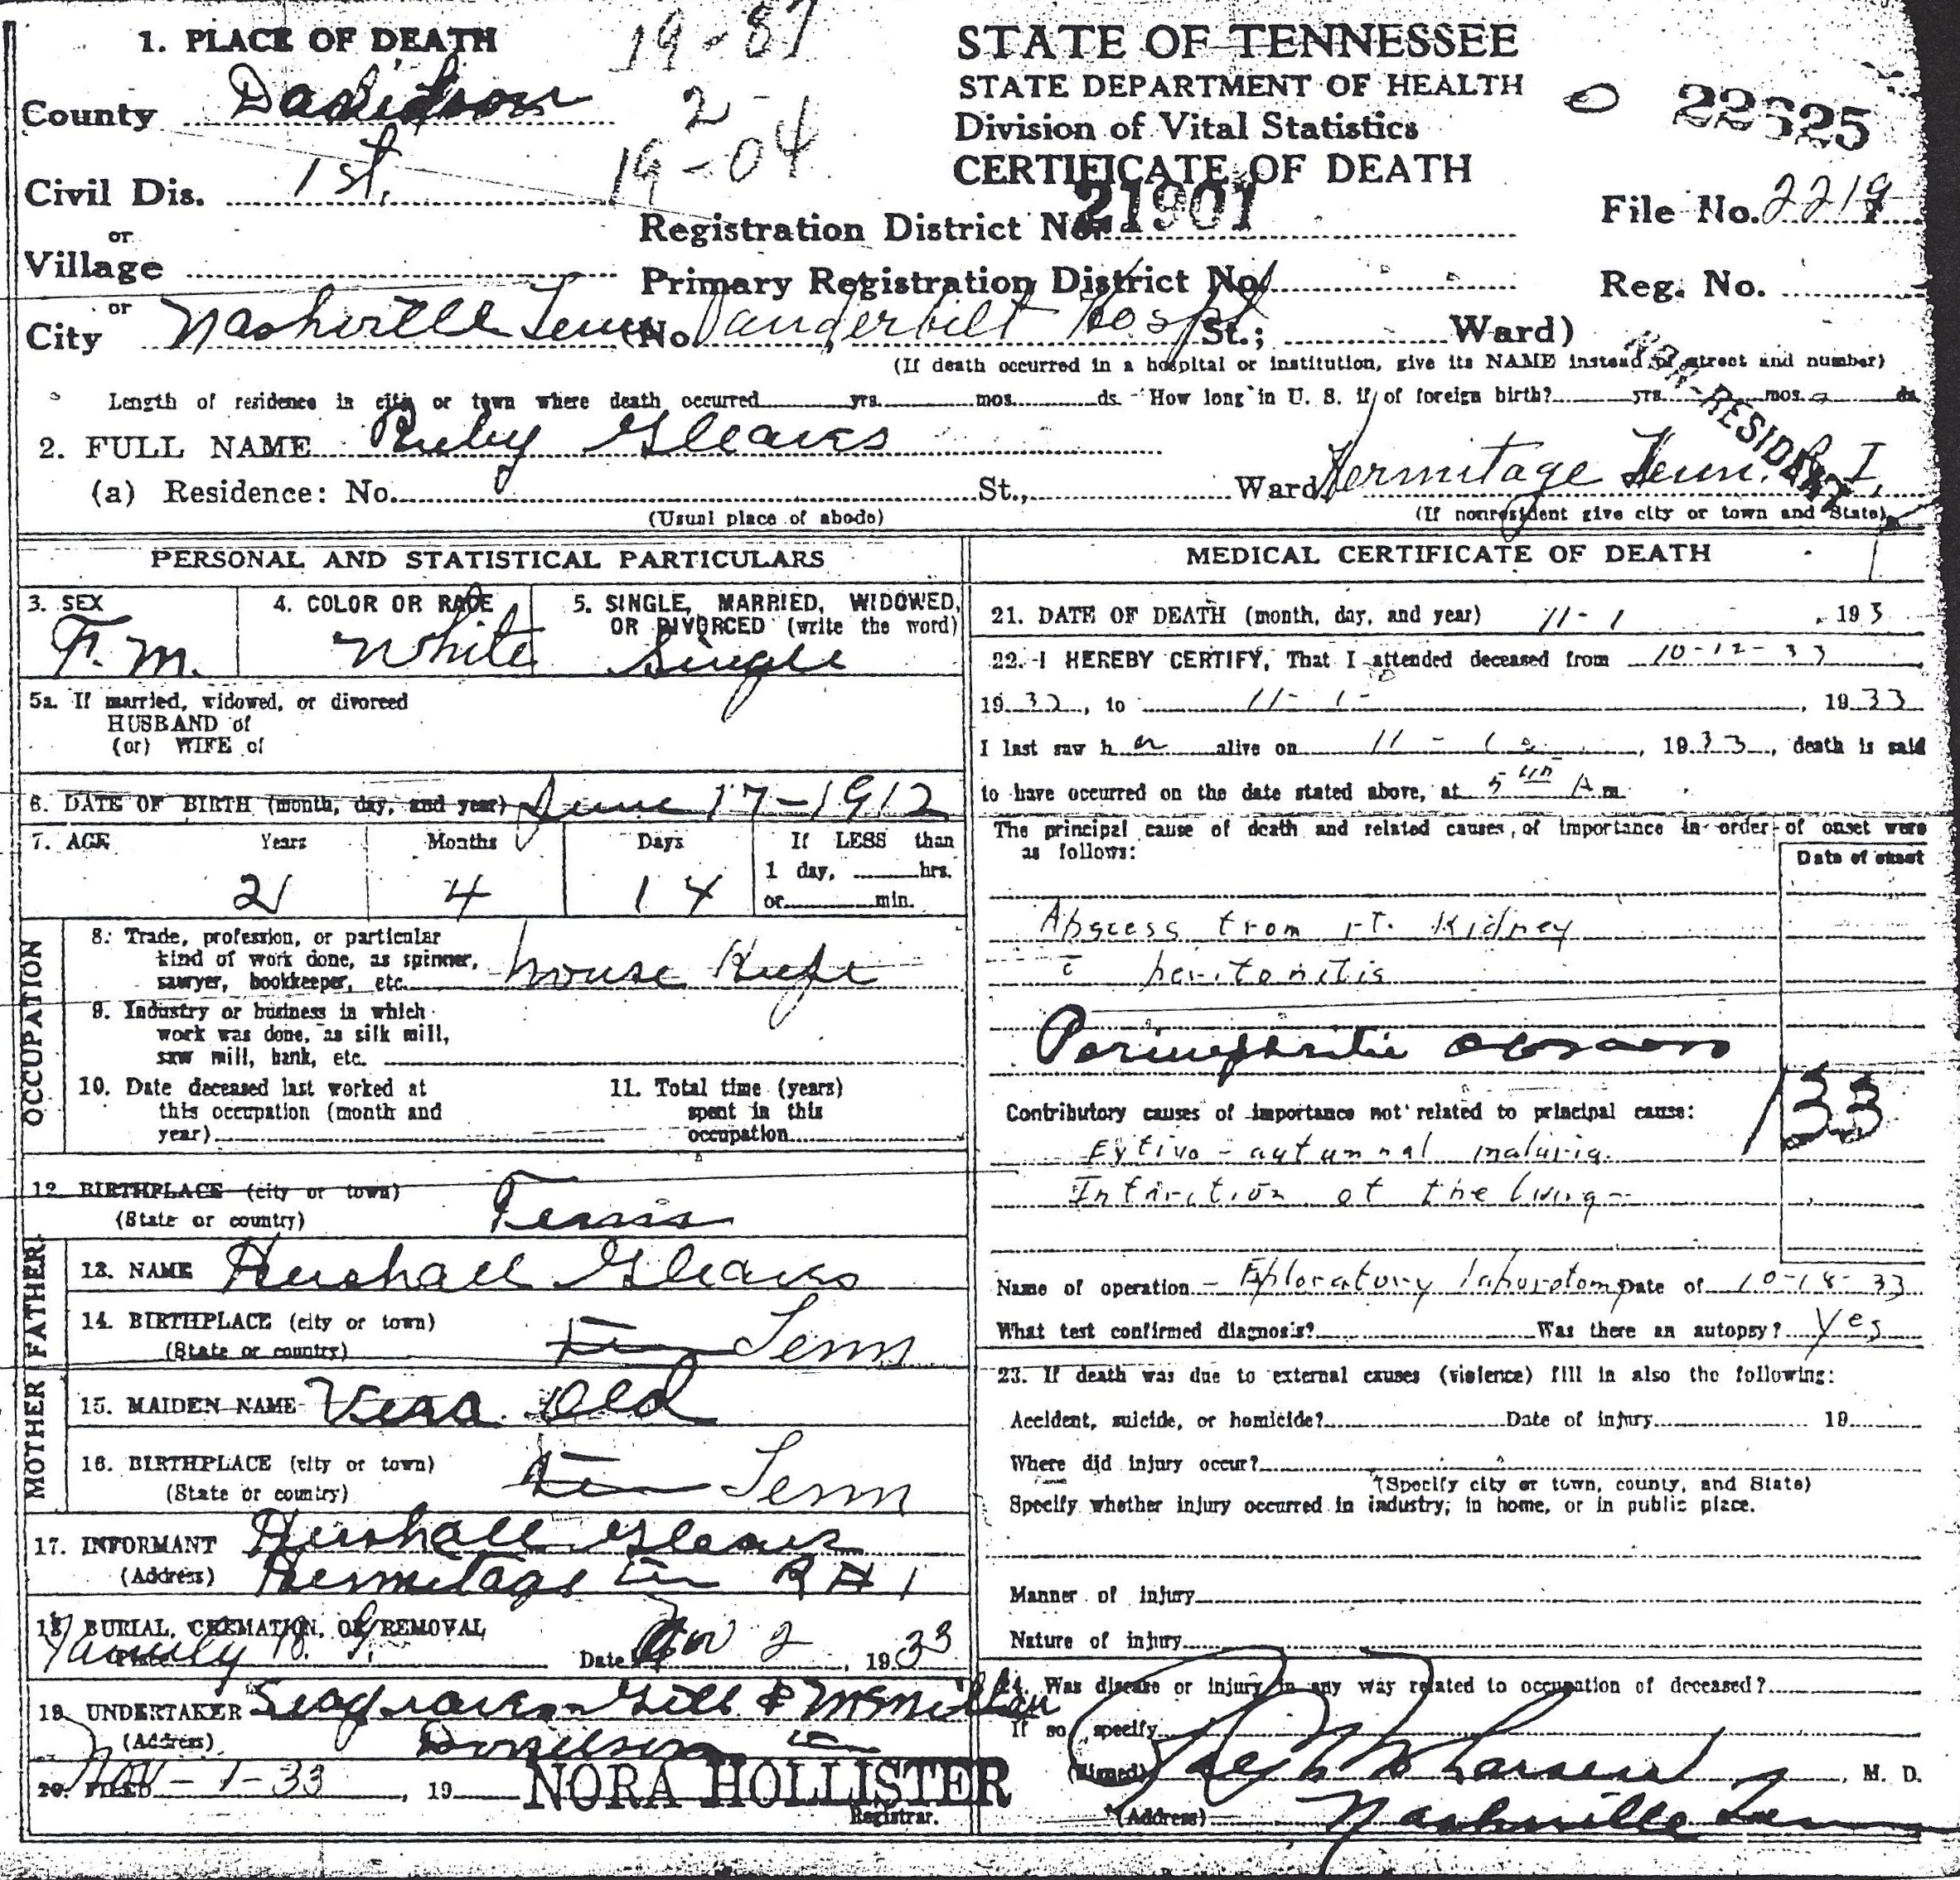 1. PLACE OF DEATH
19-87
STATE OF TENNESSEE
STATE DEPARTMENT OF HEALTH
Division of Vital Statistics
CERTIFICATE OF DEATH
County Davidson
2
Civil Dis. 1st.
19-04
21901
or
Village
Registration District No.
File No. 2219
Primary Registration District No.
Reg. No.
or
City Nashville Tenn (No. Vanderbilt Hospt St.; Ward)
(If death occurred in a hospital or institution, give its NAME instead of street and number)
NON-RESIDENT
Length of residence in city or town where death occurred yrs. mos. ds. How long in U. S. if of foreign birth? yrs. mos. ds.
2. FULL NAME Ruby Gleaves
(a) Residence: No. St., Ward Hermitage Tenn. R I.
(Usual place of abode) (If nonresident give city or town and State)
PERSONAL AND STATISTICAL PARTICULARS
3. SEX F.M.
4. COLOR OR RACE White
5. SINGLE, MARRIED, WIDOWED, OR DIVORCED (write the word) Single
5a. If married, widowed, or divorced
HUSBAND of
(or) WIFE of
6. DATE OF BIRTH (month, day, and year) June 17-1912
7. AGE Years Months Days If LESS than
1 day, hrs.
21 4 14 or min.
OCCUPATION
8. Trade, profession, or particular
kind of work done, as spinner,
sawyer, bookkeeper, etc. house
9. Industry or business in which
work was done, as silk mill,
saw mill, bank, etc.
10. Date deceased last worked at
this occupation (month and
year)
11. Total time (years)
spent in this
occupation
12. BIRTHPLACE (city or town)
(State or country) Tenn
FATHER
13. NAME Hershall Gleaves
14. BIRTHPLACE (city or town)
(State or country) Tenn
MOTHER
15. MAIDEN NAME Vera Old
16. BIRTHPLACE (city or town)
(State or country) Tenn
17. INFORMANT Hershall Gleaves
(Address) Hermitage Tn R # 1
18. BURIAL, CREMATION, OR REMOVAL
Family B. G. Date Nov 2, 1933
19. UNDERTAKER Seagraves Gill & McMillan
(Address) Donelson Tn
20. FILED Nov-1-33, 19 NORA HOLLISTER
Registrar.
MEDICAL CERTIFICATE OF DEATH
21. DATE OF DEATH (month, day, and year) 11-1, 193
22. I HEREBY CERTIFY, That I attended deceased from 10-12-33
1933, to 11-1-, 1933
I last saw her alive on 11-1, 1933, death is said
to have occurred on the date stated above, at 5 A m.
The principal cause of death and related causes, of importance in order of onset were
as follows:
Date of onset
Abscess from rt. Kidney
c̄ peritonitis
Perinephritic abscess
133
Contributory causes of importance not related to principal cause:
Estivo-autumnal malaria
Name of operation Exploratory laporotomy Date of 10-18-33
What test confirmed diagnosis? Was there an autopsy? Yes
23. If death was due to external causes (violence) fill in also the following:
Accident, suicide, or homicide? Date of injury 19
Where did injury occur?
(Specify city or town, county, and State)
Specify whether injury occurred in industry, in home, or in public place.
Manner of injury
Nature of injury
24. Was disease or injury in any way related to occupation of deceased?
If so, specify
(Signed) Larsen, M. D.
(Address) Nashville Tenn